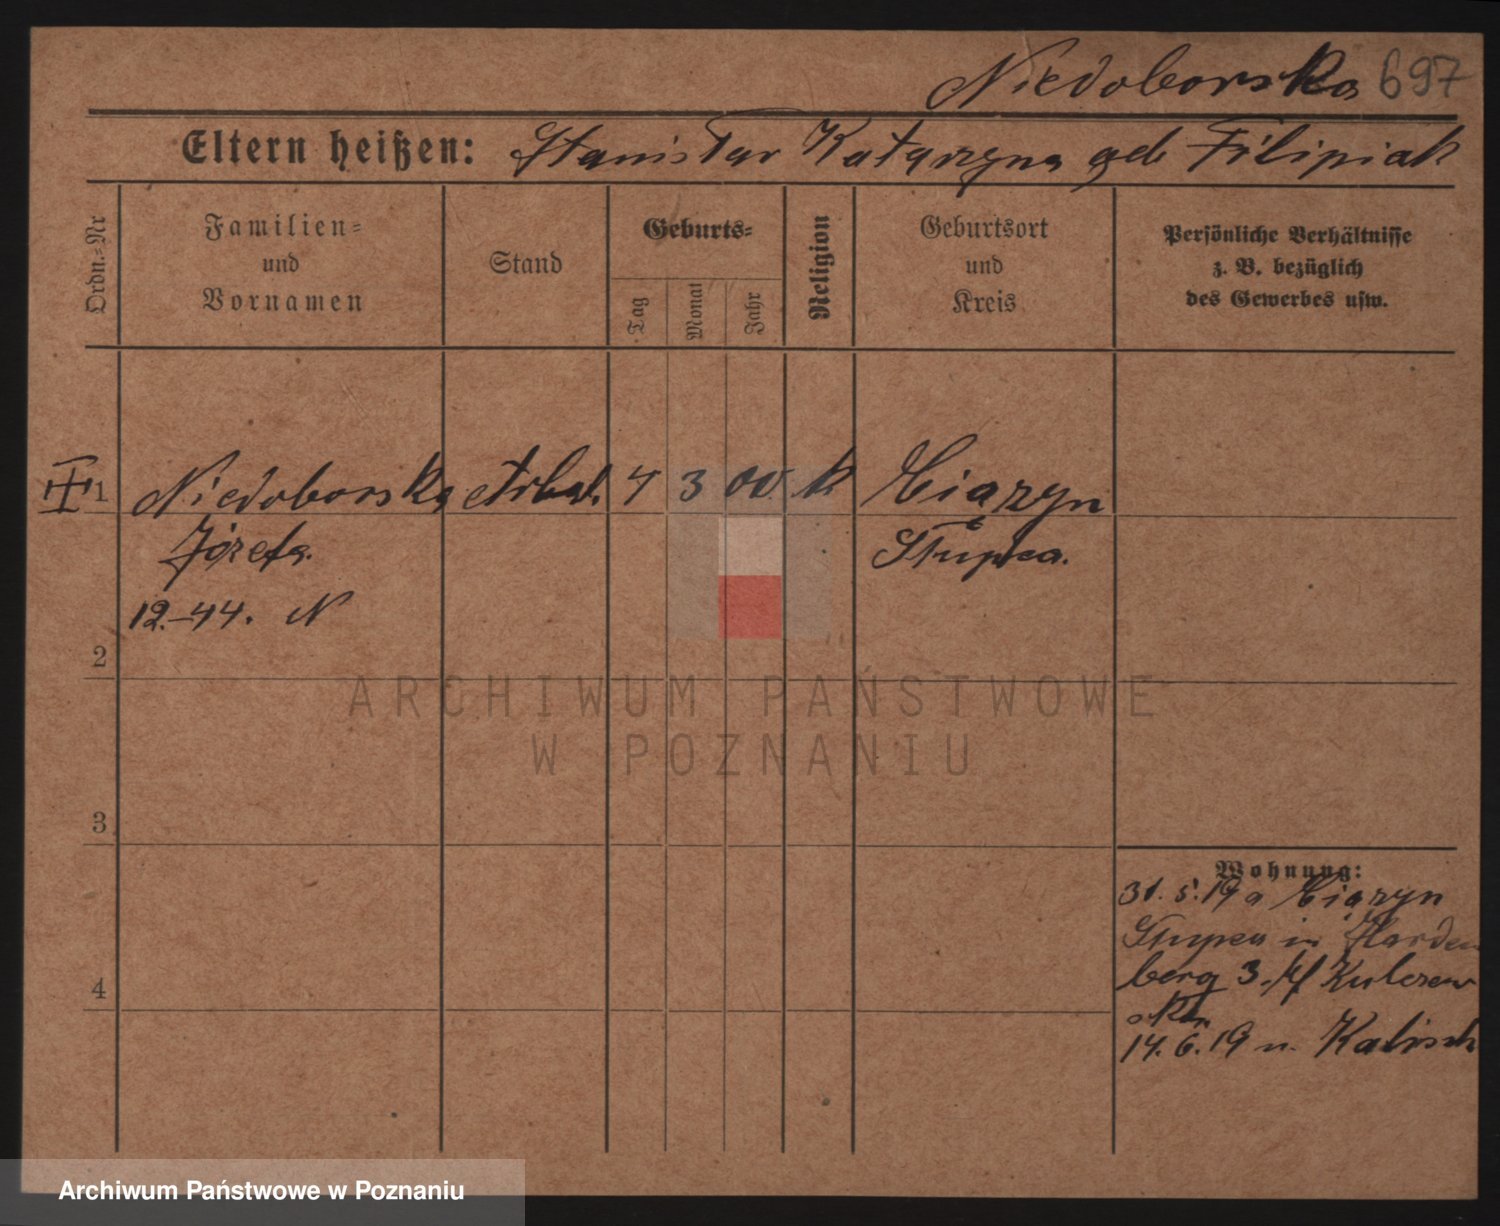 Niedoborska 697
Eltern heißen: Stanisław Katarzyna geb Filipiak
Ordn.-Nr
Familien- und Vornamen
Stand
Geburts-
Tag
Monat
Jahr
Religion
Geburtsort und Kreis
Persönliche Verhältnisse
z. B. bezüglich
des Gewerbes usw.
1 Niedoborska Arbat. 4 3 00 k Ciązyn
Józefa. Słupca.
12.-44. N
2
3
4
Wohnung:
31. 5. 19 a Ciązyn
Słupca in Harden
berg 3.
14. 6. 19 n. Kalisch
ARCHIWUM PAŃSTWOWE
W POZNANIU
Archiwum Państwowe w Poznaniu